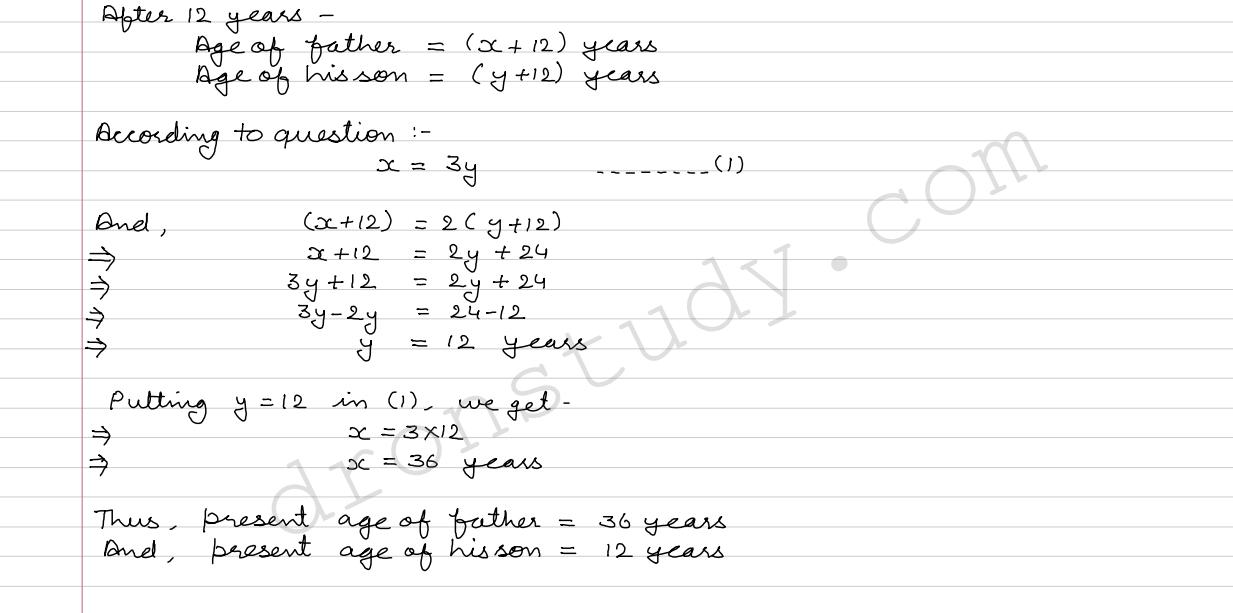 After 12 years -
Age of father = (x+12) years
Age of his son = (y+12) years
According to question :-
x = 3y --------(1)
And, (x+12) = 2(y+12)
⇒ x+12 = 2y + 24
⇒ 3y+12 = 2y + 24
⇒ 3y-2y = 24-12
⇒ y = 12 years
Putting y=12 in (1), we get -
⇒ x = 3×12
⇒ x = 36 years
Thus, present age of father = 36 years
And, present age of his son = 12 years
dronstudy.com